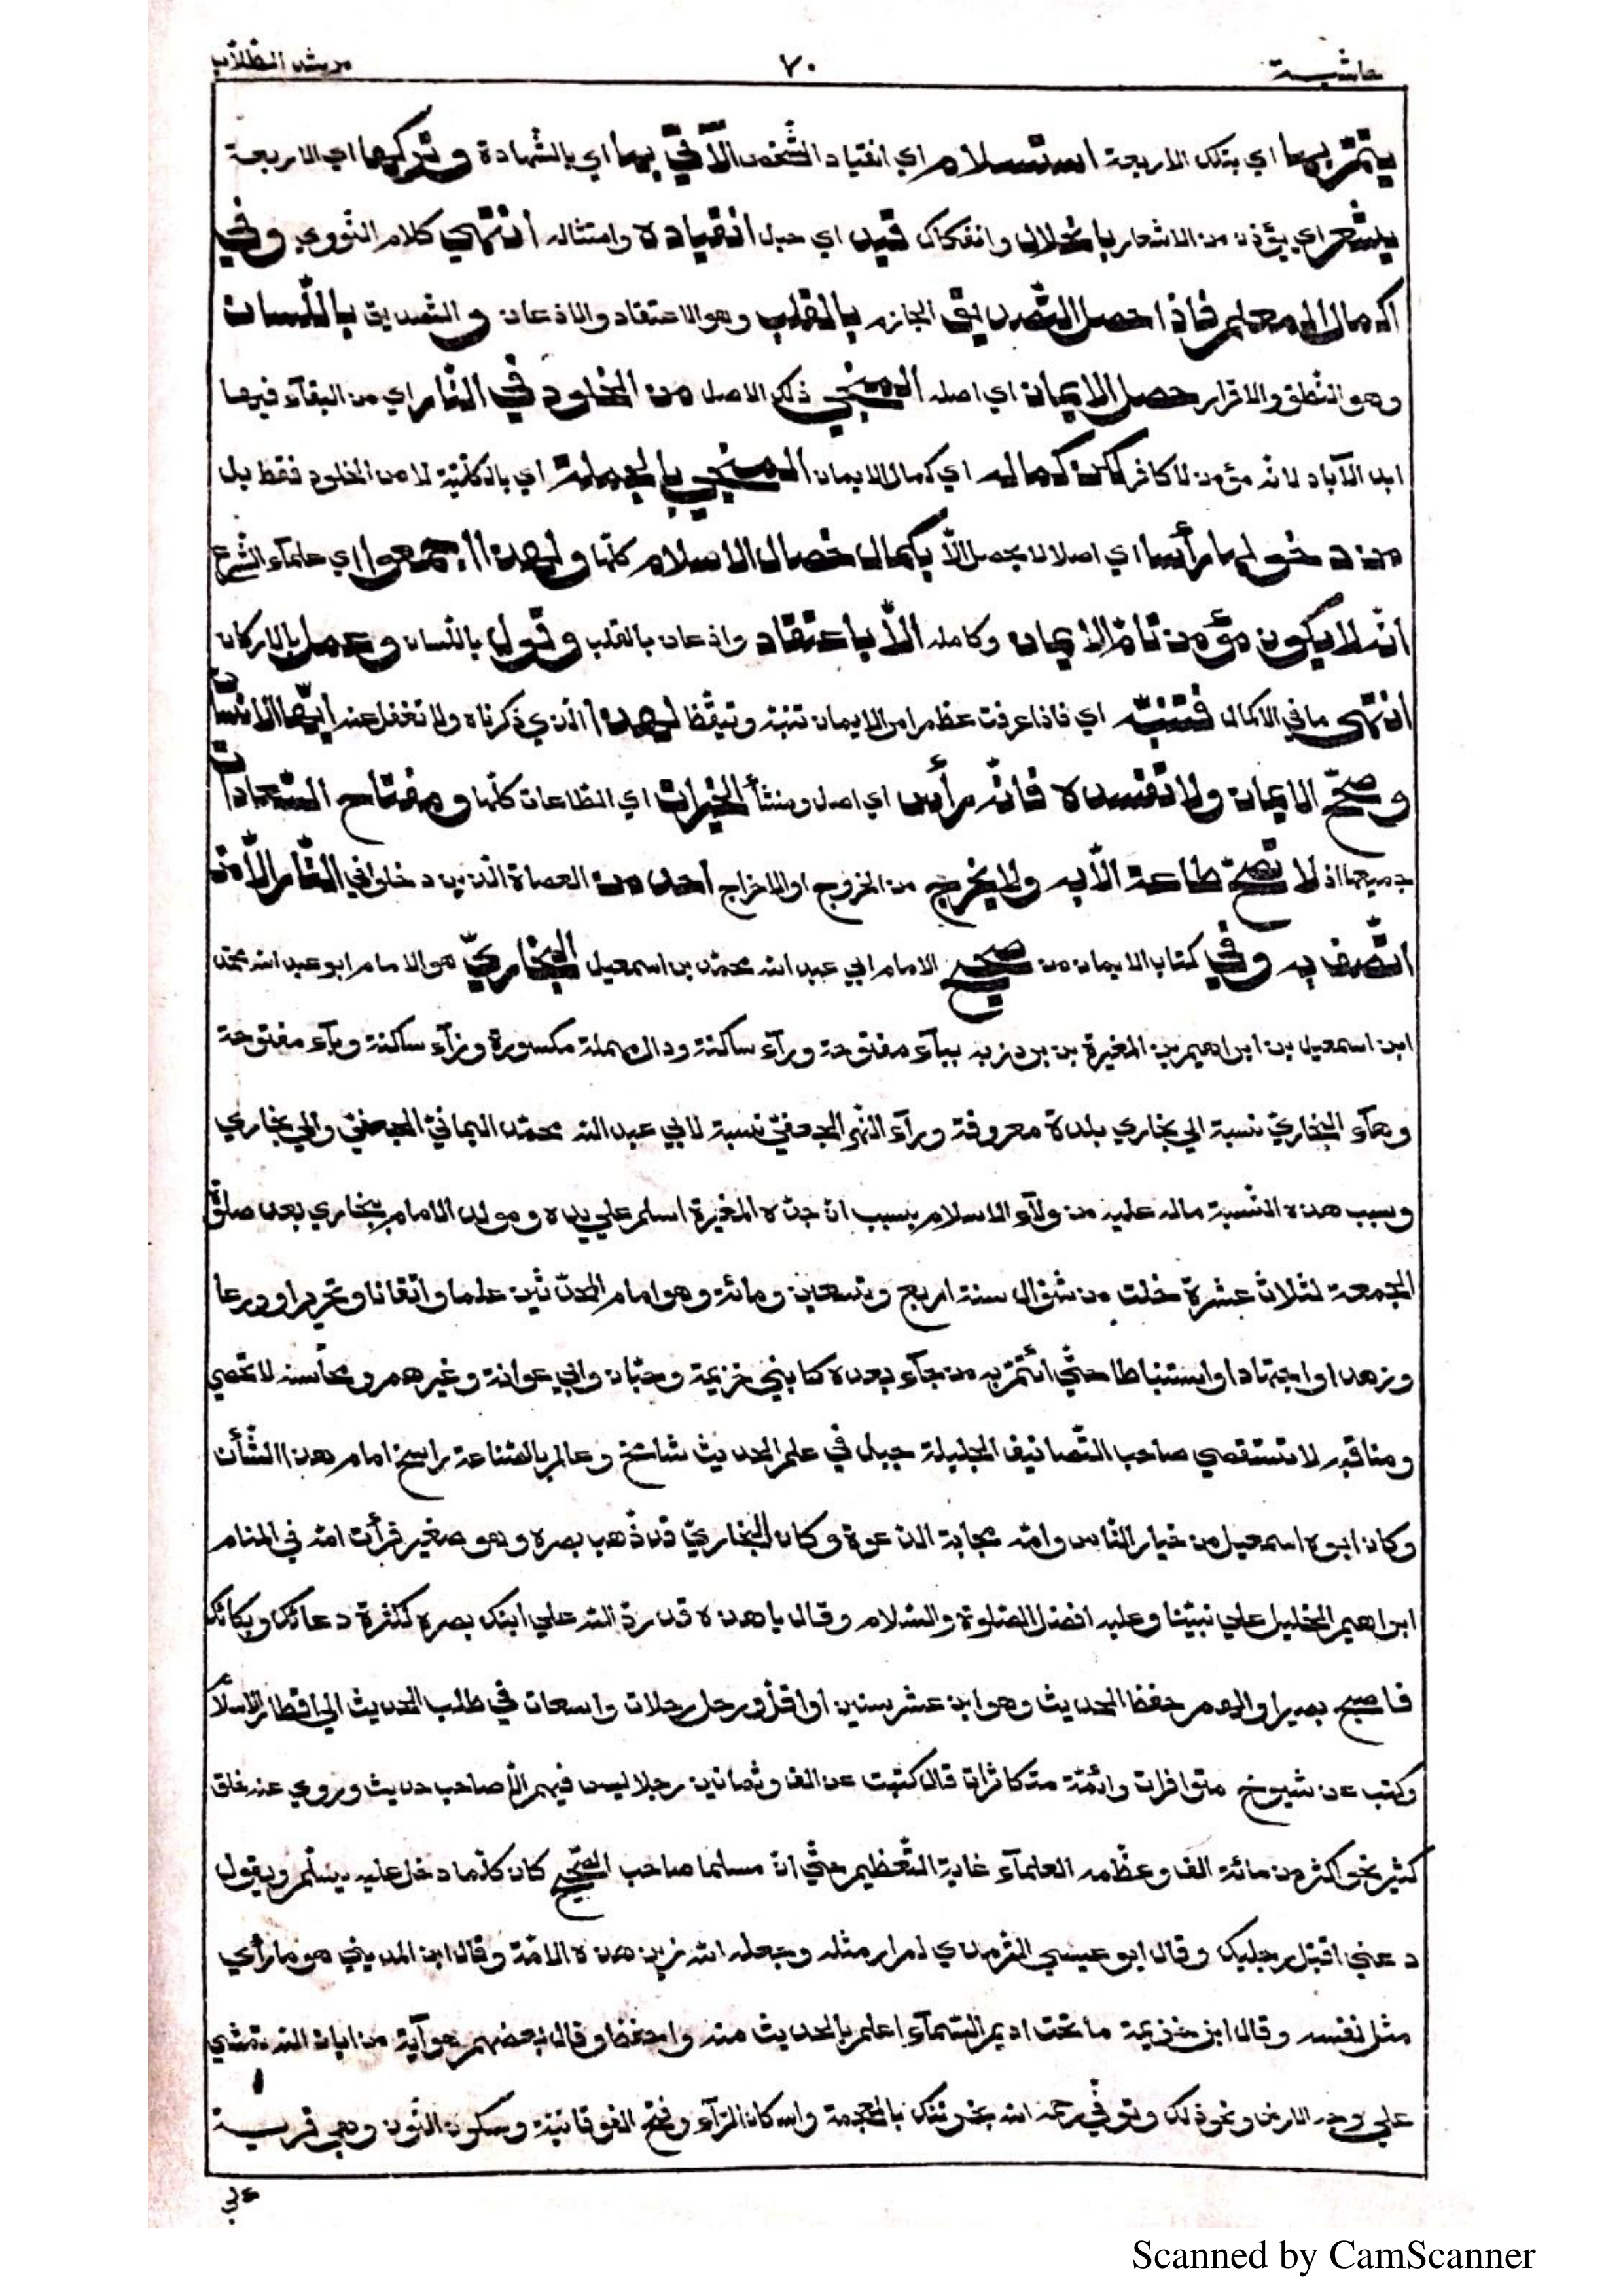 حاشية ٧٠ مرشد الطلاب
يتمّ بها اي بتلك الاربعة استسلام اي انقياد الشّخص الآتي بها اي بالشّهادة وتركها اي الاربعة
يشعر اي يؤذن من الاشعار بانحلال وانفكاك قيد اي حبل انقياده وامتثاله انتهي كلام النّووي وفي
اكمال المعلم فاذا حصل التّصديق الجازم بالقلب وهو الاعتقاد والاذعان والتّصديق باللّسان
وهو النّطق والاقرار حصل الايمان اي اصله المنجي ذلك الاصل من الخلود في النّار اي من البقآء فيها
ابد الآباد لانّه مؤمن لا كافر لكن كماله اي كمال الايمان المنجي بالجملة اي بالكلّيّة لا من الخلود فقط بل
من دخولها رأسا اي اصلا لا يحصل الّا بكمال خصال الاسلام كلّها ولهذا اجمعوا اي علمآء الشّرع
انّه لا يكون مؤمن تامّ الايمان وكامله الّا باعتقاد واذعان بالقلب وقول باللّسان وعمل بالاركان
انتهي ما في الاكمال فتنبّه اي فاذا عرفت عظم امر الايمان تنبّه وتيقّظ لهذا الّذي ذكرناه ولا تغفل عنه ايّها الانسان
وصحّح الايمان ولا تفسده فانّه رأس اي اصل ومنشأ الخيرات اي الطّاعات كلّها ومفتاح السّعادات
جميعها اذ لا تصحّ طاعة الّا به ولا يخرج من الخروج او الاخراج احد من العصاة الّذين دخلوا في النّار الّا من
اتّصف به وفي كتاب الايمان من صحيح الامام ابي عبد الله محمّد بن اسمعيل البخاريّ هو الامام ابو عبد الله محمّد
ابن اسمعيل بن ابراهيم بن المغيرة بن بردزبه ببآء مفتوحة ورآء ساكنة ودال مهملة مكسورة وزآء ساكنة وبآء مفتوحة
وهآء البخاريّ نسبة الي بخاري بلدة معروفة ورآء النّهر الجعفيّ نسبة لابي عبد الله محمّد اليمانيّ الجعفيّ والي بخاري
وسبب هذه النّسبة ماله عليه من ولآء الاسلام بسبب انّ جدّه المغيرة اسلم علي يده ومولد الامام ببخاري بعد صلوة
الجمعة لثلاث عشرة خلت من شوّال سنة اربع وتسعين ومائة وهو امام المحدّثين علما واتقانا وتحريرا وورعا
وزهدا واجتهادا واستنباطا حتّي ائتمّ به من جآء بعده كابني خزيمة وحبّان وابي عوانة وغيرهم ومحاسنه لا تحصي
ومناقبه لا تستقصي صاحب التّصانيف الجليلة جبل في علم الحديث شامخ وعالم بالصّناعة راسخ امام هذا الشّأن
وكان ابوه اسمعيل من خيار النّاس وامّه مجابة الدّعوة وكان البخاريّ قد ذهب بصره وهو صغير فرأت امّه في المنام
ابراهيم الخليل علي نبيّنا وعليه افضل الصّلوة والسّلام وقال يا هذه قد ردّ الله علي ابنك بصره لكثرة دعائك وبكائك
فاصبح بصيرا والهم حفظ الحديث وهو ابن عشر سنين او اقلّ ورحل رحلات واسعات في طلب الحديث الي اقطار الاسلام
وكتب عن شيوخ متوافرات وائمّة متكاثرات قال كتبت عن الف وثمانين رجلا ليس فيهم الّا صاحب حديث وروي عنه خلق
كثير نحو اكثر من مائة الف وعظّمه العلمآء غاية التّعظيم حتّي انّ مسلما صاحب الصّحيح كان كلّما دخل عليه يسلّم ويقول
دعني اقبّل رجليك وقال ابو عيسي التّرمذي لم ار مثله وجعله الله زين هذه الامّة وقال ابن المديني هو ما رأي
مثل نفسه وقال ابن خزيمة ما تحت اديم السّمآء اعلم بالحديث منه ولا احفظ وقال بعضهم هو آية من ايات الله تمشي
علي وجه الارض ونحو ذلك وتوفّي رحمه الله بخرتنك بالمعجمة واسكان الرّآء وفتح الفوقانيّة وسكون النّون وهي قرية
علي
Scanned by CamScanner